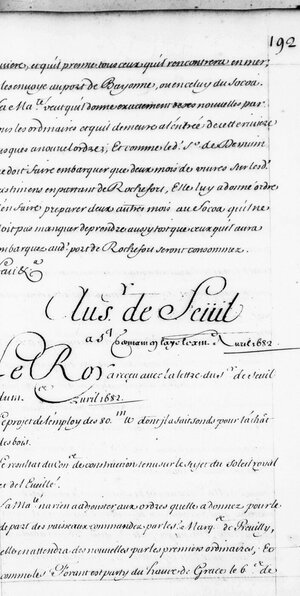 192
riviere, et qu'il prenne tous ceux qu'il rencontrera en mer,
les envoye au port de Bayonne, ou en celuy du Socoa.
Sa Ma.té veut qu'il donne exactement de ses nouvelles par
tous les ordinaires et qu'il demeure à l'entrée de cette riviere
jusques a nouvel ordre; Et comme led. S.r de
ne doit faire embarquer que deux mois de vivres sur les d.
bastimens en partant de Rochefort, Elle luy a donné ordre
en faire preparer deux autres mois au Socoa qu'il ne
doit pas manquer de prendre aussy tost que ceux qu'il aura
embarquez aud. port de Rochefort seront consommez.
Au S.r de Seüil
a S.t Germain en laye le xiii.e Avril 1682.
Le Roy a reçeu avec la lettre du S.r de Seüil
du Avril 1682.
Le projet de l'employ des 80. m tt dont il a fait fonds pour l'achat
des bois.
Le resultat du Con.el de construction tenu sur le sujet du Soleil royal
et de l'Eueillé.
Sa Ma.té n'a rien a adjouster aux ordres qu'elle a donnez pour le
depart des vaisseaux commandez par les S.rs Marq.is de Preuilly,
elle en attendra des nouvelles par les premiers ordinaires, Et
comme le S. Forant est party du havre de Grace le 6.e de